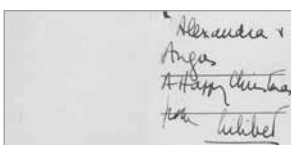 Alexandra &
Angus
A Happy Christmas
from Lilibet